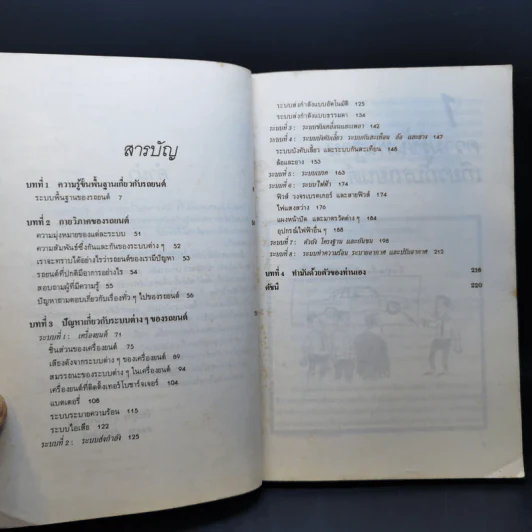 สารบัญ
บทที่ 1 ความรู้ขั้นพื้นฐานเกี่ยวกับรถยนต์
ระบบพื้นฐานของรถยนต์ 7
บทที่ 2 กายวิภาคของรถยนต์
ความมุ่งหมายของแต่ละระบบ 51
ความสัมพันธ์ซึ่งกันและกันของระบบต่าง ๆ 52
เราจะทราบได้อย่างไรว่ารถยนต์ของเรามีปัญหา 53
รถยนต์ที่ปกติมีอาการอย่างไร 54
สอบถามผู้ที่มีความรู้ 55
ปัญหาถามตอบเกี่ยวกับเรื่องทั่ว ๆ ไปของรถยนต์ 56
บทที่ 3 ปัญหาเกี่ยวกับระบบต่าง ๆ ของรถยนต์
ระบบที่ 1 : เครื่องยนต์ 71
ชิ้นส่วนของเครื่องยนต์ 75
เสียงดังจากระบบต่าง ๆ ของเครื่องยนต์ 89
สมรรถนะของระบบต่าง ๆ ในเครื่องยนต์ 94
เครื่องยนต์ที่ติดตั้งเทอร์โบชาร์จเจอร์ 104
แบตเตอรี่ 108
ระบบระบายความร้อน 115
ระบบไอเสีย 122
ระบบที่ 2 : ระบบส่งกำลัง 125
ระบบส่งกำลังแบบอัตโนมัติ 125
ระบบส่งกำลังแบบธรรมดา 134
ระบบที่ 3 : ระบบขับเคลื่อนและเพลา 142
ระบบที่ 4 : ระบบบังคับเลี้ยว ระบบกันสะเทือน ล้อ และยาง 147
ระบบบังคับเลี้ยว และระบบกันสะเทือน 148
ล้อและยาง 153
ระบบที่ 5 : ระบบเบรค 163
ระบบที่ 6 : ระบบไฟฟ้า 174
ฟิวส์ วงจรเบรคเกอร์ และสายฟิวส์ 174
ไฟแสงสว่าง 176
แผงหน้าปัด และมาตรวัดต่าง ๆ 181
อุปกรณ์ไฟฟ้าอื่น ๆ 188
ระบบที่ 7 : ตัวถัง โครงฐาน และกันชน 198
ระบบที่ 8 : ระบบทำความร้อน ระบายอากาศ และปรับอากาศ 212
บทที่ 4 ทำมันด้วยตัวของท่านเอง 218
ดัชนี 220